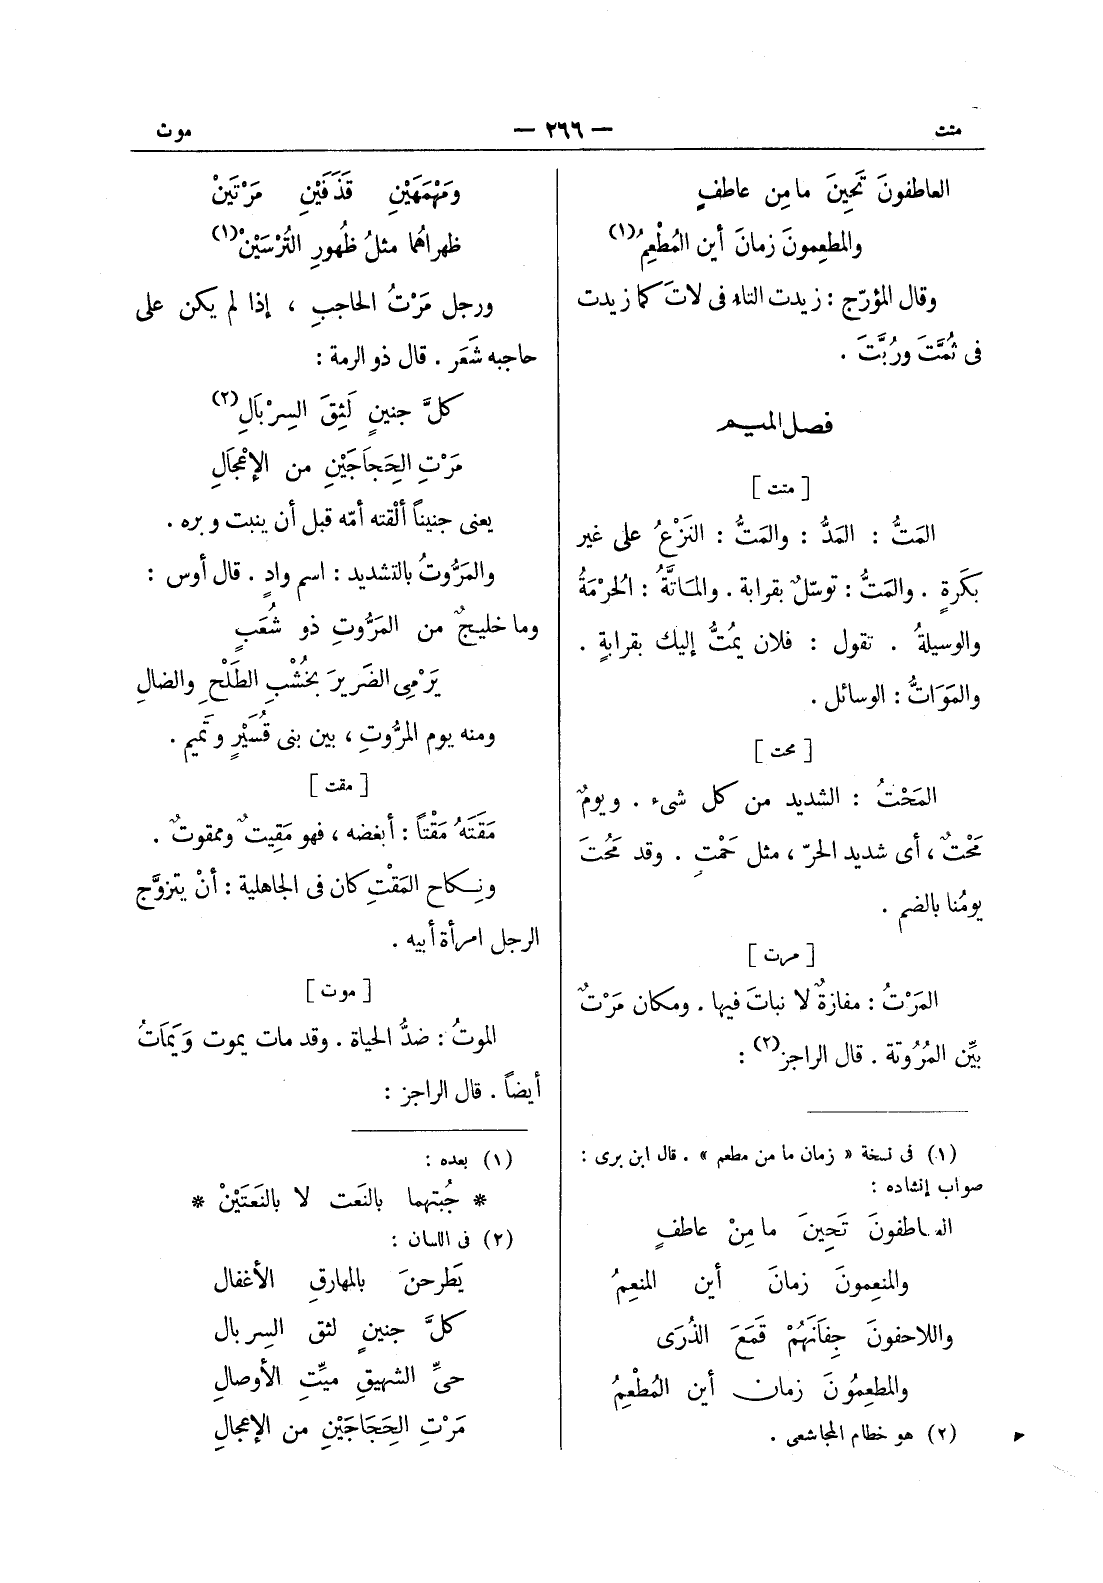 متت
— ٢٦٦ —
موت
العاطفونَ تَحِينَ مامِن عاطفٍ
والمطعِمونَ زمانَ أين المُطْعِمُ(١)
وقال المؤرّج : زيدت التاء فى لاتَ كما زيدت
فى ثُمَّتَ ورُبَّتَ .
فصل الميم
[ متت ]
المَتُّ : المَدُّ : والمَتُّ : النَزْعُ على غير
بَكَرةٍ . والمَتُّ : توسّلٌ بقرابة . والمَاتَّةُ : الحُرْمَةُ
والوسيلةُ . تقول : فلان يَمُتُّ إليك بقرابةٍ .
والمَوَاتُّ : الوسائل .
[ محت ]
المَحْتُ : الشديد من كل شىء . ويومٌ
مَحْتٌ ، أى شديد الحرّ ، مثل حَمْتٍ . وقد مَحُتَ
يومُنا بالضم .
[ مرت ]
المَرْتُ : مفازةٌ لا نباتَ فيها . ومكان مَرْتٌ
بيِّن المُرُوتة . قال الراجز(٢) :
(١) فى نسخة « زمان ما من مطعم » . قال ابن برى :
صواب إنشاده :
العاطفونَ تَحِينَ مامِنْ عاطفٍ
والمنعِمونَ زمانَ أين المنعِمُ
واللاحفونَ جِفَانَهُمْ قَمَعَ الذُرَى
والمطعِمُونَ زمان أين المُطْعِمُ
(٢) هو خطام المجاشعى .
ومَهْمَهَيْنِ قَذَفَيْنِ مَرْتَيْنْ
ظهراهُما مثلُ ظُهورِ التُرْسَيْنْ(١)
ورجل مَرْتُ الحاجبِ ، إذا لم يكن على
حاجبه شَعَر . قال ذو الرمة :
كلَّ جنينٍ لَثِقَ السِرْبَالِ(٢)
مَرْتِ الحِجَاجَيْنِ من الإعْجَالِ
يعنى جنيناً ألْقته أمّه قبل أن ينبت وبره .
والمَرُّوتُ بالتشديد : اسم وادٍ . قال أوس :
وما خليجٌ من المَرُّوتِ ذو شُعَبٍ
يَرْمِى الضَريرَ بِخُشْبِ الطَلْحِ والضالِ
ومنه يوم المرُّوتِ ، بين بنى قُشَيْرٍ وتَميم .
[ مقت ]
مَقَتَهُ مَقْتاً : أبغضه ، فهو مَقِيتٌ وممقوتٌ .
ونِكاح المَقْتِ كان فى الجاهلية : أنْ يتزوَّج
الرجل امرأة أبيه .
[ موت ]
الموتُ : ضدُّ الحياة . وقد مات يموت وَيَمَاتُ
أيضاً . قال الراجز :
(١) بعده :
* جُبتهما بالنَعت لا بالنَعتَيْنْ *
(٢) فى اللسان :
يَطرحنَ بالمهارقِ الأغفال
كلَّ جنينٍ لثق السِربال
حىِّ الشهيقِ ميِّتِ الأوصالِ
مَرْتِ الحِجَاجَيْنِ من الإعجالِ